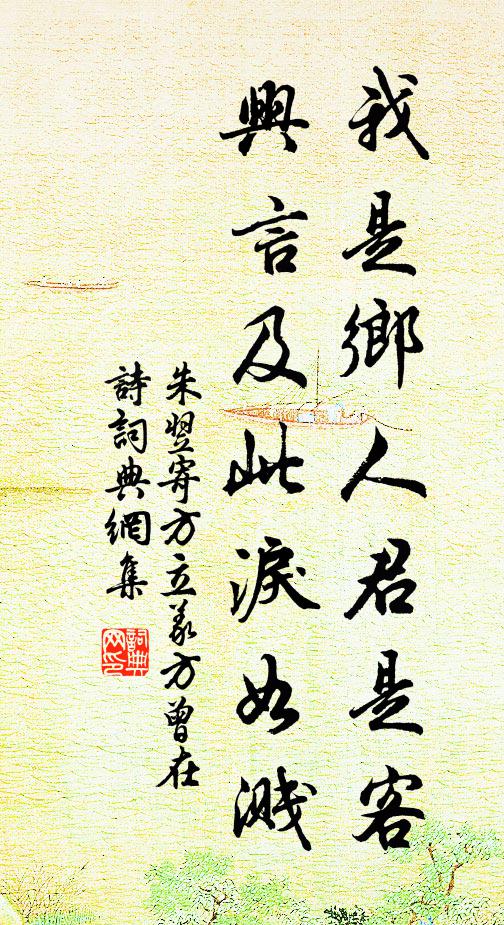 我是鄉人君是客
興言及此淚如濺
朱翌寄方立義方曾在
詩詞典網集
詞典网印